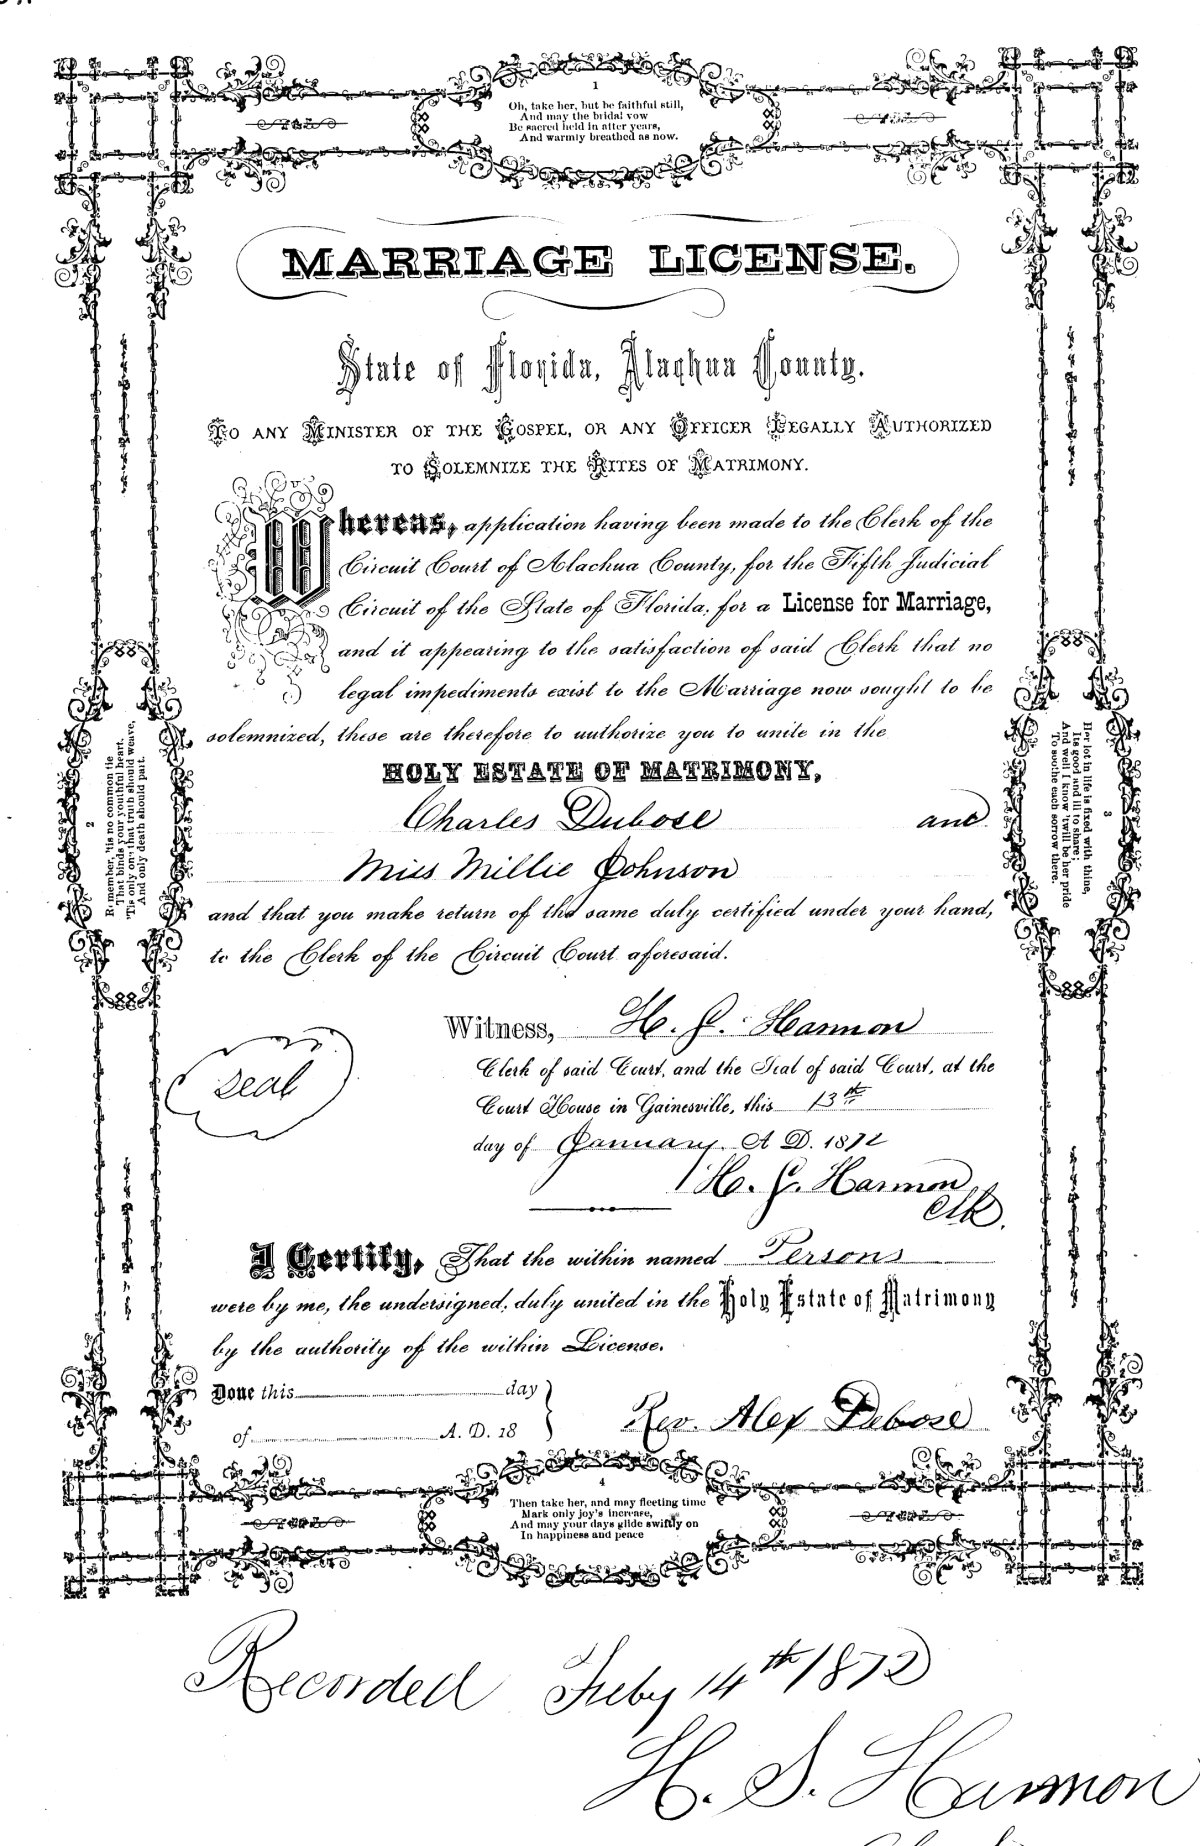 1
Oh, take her, but be faithful still,
And may the bridal vow
Be sacred held in after years,
And warmly breathed as now.
MARRIAGE LICENSE.
State of Florida, Alachua County.
TO ANY MINISTER OF THE GOSPEL, OR ANY OFFICER LEGALLY AUTHORIZED
TO SOLEMNIZE THE RITES OF MATRIMONY.
Whereas, application having been made to the Clerk of the
Circuit Court of Alachua County, for the Fifth Judicial
Circuit of the State of Florida, for a License for Marriage,
and it appearing to the satisfaction of said Clerk that no
legal impediments exist to the Marriage now sought to be
solemnized, these are therefore to authorize you to unite in the
HOLY ESTATE OF MATRIMONY,
Charles Dubose and
Miss Millie Johnson
and that you make return of the same duly certified under your hand,
to the Clerk of the Circuit Court aforesaid.
2
Remember, 'tis no common tie
That binds your youthful heart.
'Tis only one that truth should weave,
And only death should part.
3
Her lot in life is fixed with thine,
Its good and ill to share;
And well I know 'twill be her pride
To soothe each sorrow there.
Seal
Witness, H. S. Harmon
Clerk of said Court, and the Seal of said Court, at the
Court House in Gainesville, this 13th
day of January A D. 1872
H. S. Harmon
Clk.
I Certify, That the within named Persons
were by me, the undersigned, duly united in the Holy Estate of Matrimony
by the authority of the within License.
Done this day
of A. D. 18
Rev. Alex Debose
4
Then take her, and may fleeting time
Mark only joy's increase,
And may your days glide swiftly on
In happiness and peace
Recorded Feby 14th 1872
H. S. Harmon